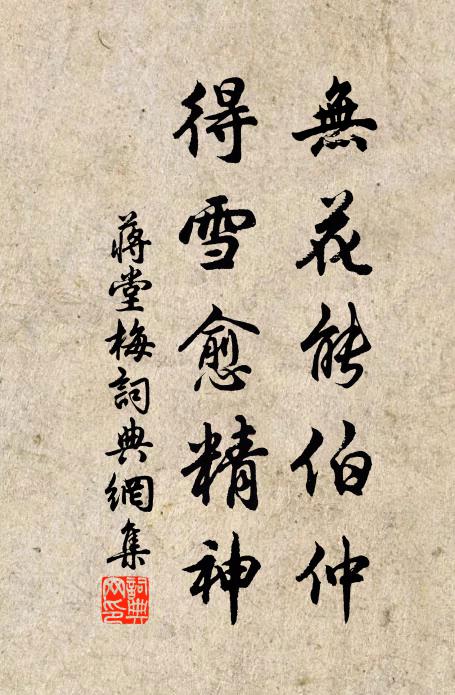 無花能伯仲
得雪愈精神
蔣堂梅詞典網集
詞典网印